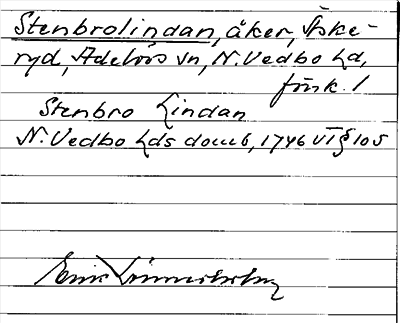 Stenbrolindan, åker, Äske-
ryd, Adelövs sn, N. Vedbo hd,
försk. 1
Stenbro Lindan
N. Vedbo hds domb, 1746 VI § 105